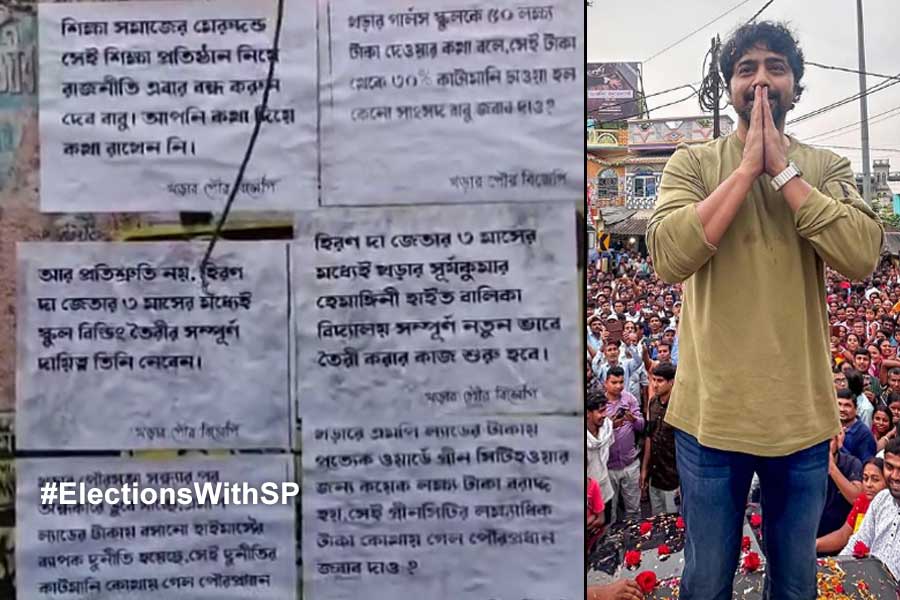 শিক্ষা সমাজের মেরুদন্ড
সেই শিক্ষা প্রতিষ্ঠান নিয়ে
রাজনীতি এবার বন্ধ করুন
দেব বাবু। আপনি কথা দিয়ে
কথা রাখেন নি।
খড়ার পৌর বিজেপি
খড়ার গার্লস স্কুলকে ৫০ লক্ষ্য
টাকা দেওয়ার কথা বলে,সেই টাকা
থেকে ৩০% কাটমানি চাওয়া হল
কেনো সাংসদ বাবু জবাব দাও?
খড়ার পৌর বিজেপি
আর প্রতিশ্রুতি নয়, হিরণ
দা জেতার ৩ মাসের মধ্যেই
স্কুল বিল্ডিং তৈরীর সম্পূর্ণ
দায়িত্ব তিনি নেবেন।
খড়ার পৌর বিজেপি
হিরণ দা জেতার ৩ মাসের
মধ্যেই খড়ার সূর্যকুমার
হেমাঙ্গিনী হাইত বালিকা
বিদ্যালয় সম্পূর্ণ নতুন ভাবে
তৈরী করার কাজ শুরু হবে।
খড়ার পৌর বিজেপি
#ElectionsWithSP
ল্যাডের টাকায় বসানো হাইমাস্টের
ব্যাপক দুর্নীতি হয়েছে,সেই দুর্নীতির
কাটমানি কোথায় গেল পৌরপ্রধান
খড়ারে এমপি ল্যাডের টাকায়
প্রত্যেক ওয়ার্ডে গ্রীন সিটিহওয়ার
জন্য কয়েক লক্ষ্য টাকা বরাদ্দ
হয়,সেই গ্রীনসিটির লক্ষ্যাধিক
টাকা কোথায় গেল পৌরপ্রধান
জবাব দাও?